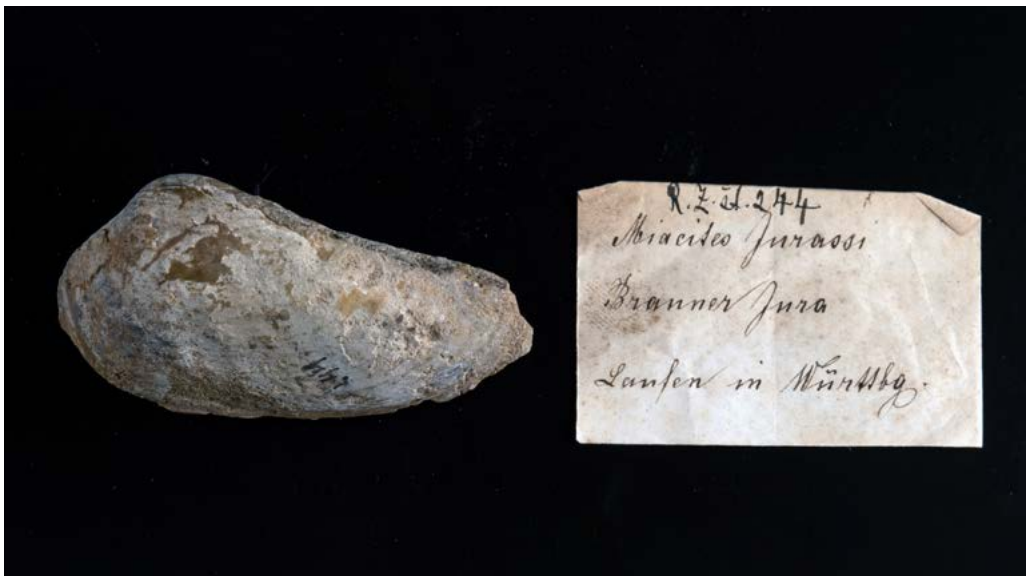 R. Z. A. 244
Miacites Jurassi
Brauner Jura
Laufen in Württbg.
244